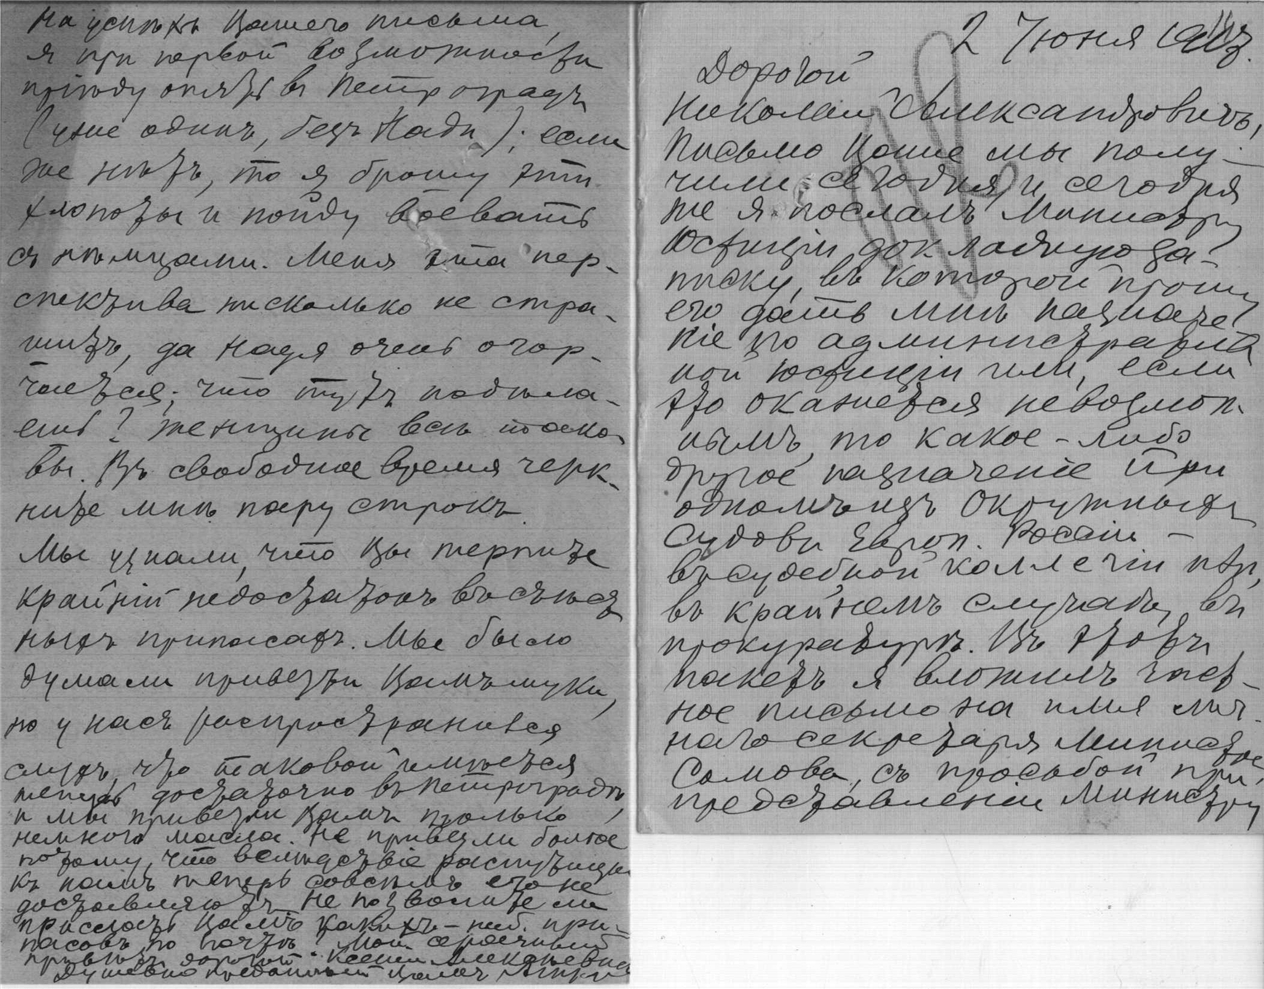 2 Июня 19
Дорогой
Николай Александровичъ,
Письмо Ваше мы полу-
чили сегодня, и сегодня
же я послалъ Министру
Юстиціи докладную за-
писку, въ которой прошу
его дать мнѣ назначе-
ніе по административ
ной юстиціи или, если
это окажется невозмож-
нымъ, то какое-либо
другое назначеніе при
одномъ изъ Окружныхъ
Судовъ Европ. Россіи –
въ судебной коллегіи или,
въ крайнемъ случаѣ, въ
прокуратурѣ. Въ этотъ
пакетъ я вложилъ част-
ное письмо на имя лич-
наго секретаря Министра
Сомова, съ просьбой при
представленіи Министру
на успѣхъ Вашего письма,
я при первой возможности
пріѣду опять въ Петроградъ
(уже одинъ, безъ Нади); если
же нѣтъ, то я брошу эти
хлопоты и пойду воевать
съ нѣмцами. Меня эта пер-
спектива нисколько не стра-
шитъ, да Надя очень огор-
чается; что тутъ подѣла-
ешь? Женщины всѣ тако-
вы. Въ свободное время черк-
ните мнѣ пару строкъ.
Мы узнали, что Вы терпите
крайній недостатокъ въ съѣст
ныхъ припасахъ. Мы было
думали привезти Вамъ муки,
но у насъ распространился
слухъ, что таковой имѣется
теперь достаточно въ Петроградѣ,
и мы привезли Вамъ только
немного масла. Не привезли болѣе
потому, что вслѣдствіе распутицы
къ намъ теперь совсѣмъ его не
доставляютъ. Не позволите ли
прислать Вамъ какихъ-ниб. при-
пасовъ по почтѣ? Мой сердечный
привѣтъ дорогой Ксеніи Алексѣевнѣ
Душевно преданный Вамъ